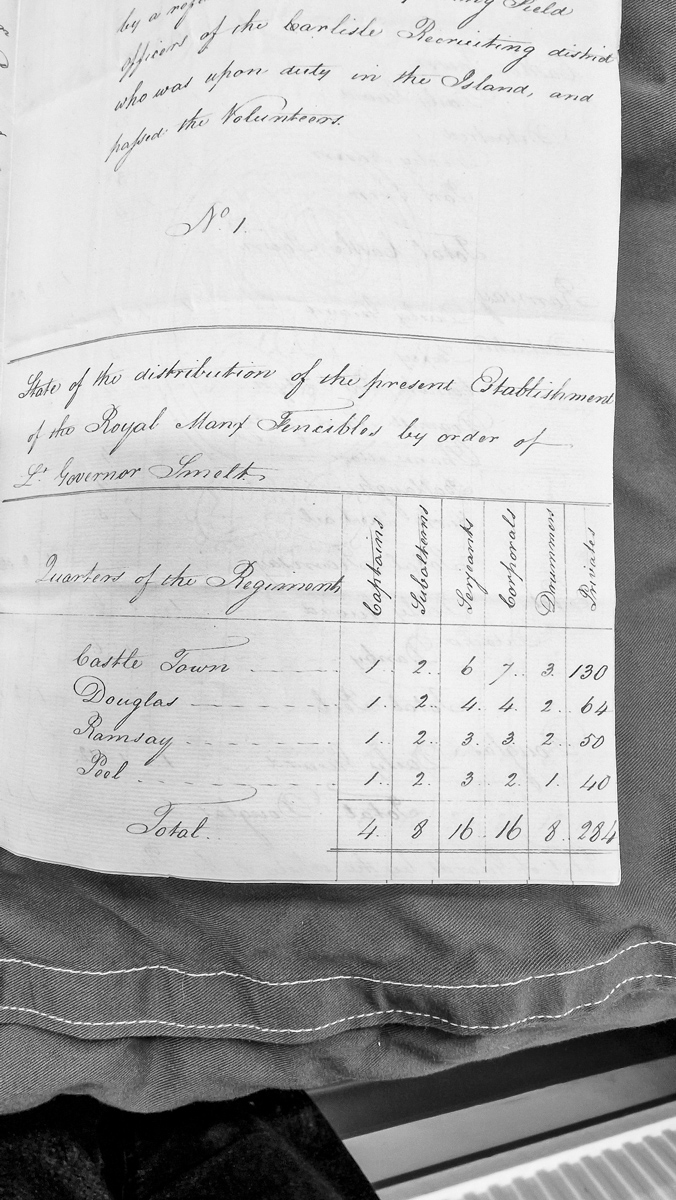 by a
Field
officers of the Carlisle Recruiting district
who was upon duty in the Island, and
passed the Volunteers.
No. 1.
State of the distribution of the present Establishment
of the Royal Manx Fencibles by order of
Lt. Governor Smelt.
Quarters of the Regiment Captains Subalterns Serjeants Corporals Drummers Privates
Castle Town 1 2 6 7 3 130
Douglas 1 2 4 4 2 64
Ramsay 1 2 3 3 2 50
Peel 1 2 3 2 1 40
Total 4 8 16 16 8 284